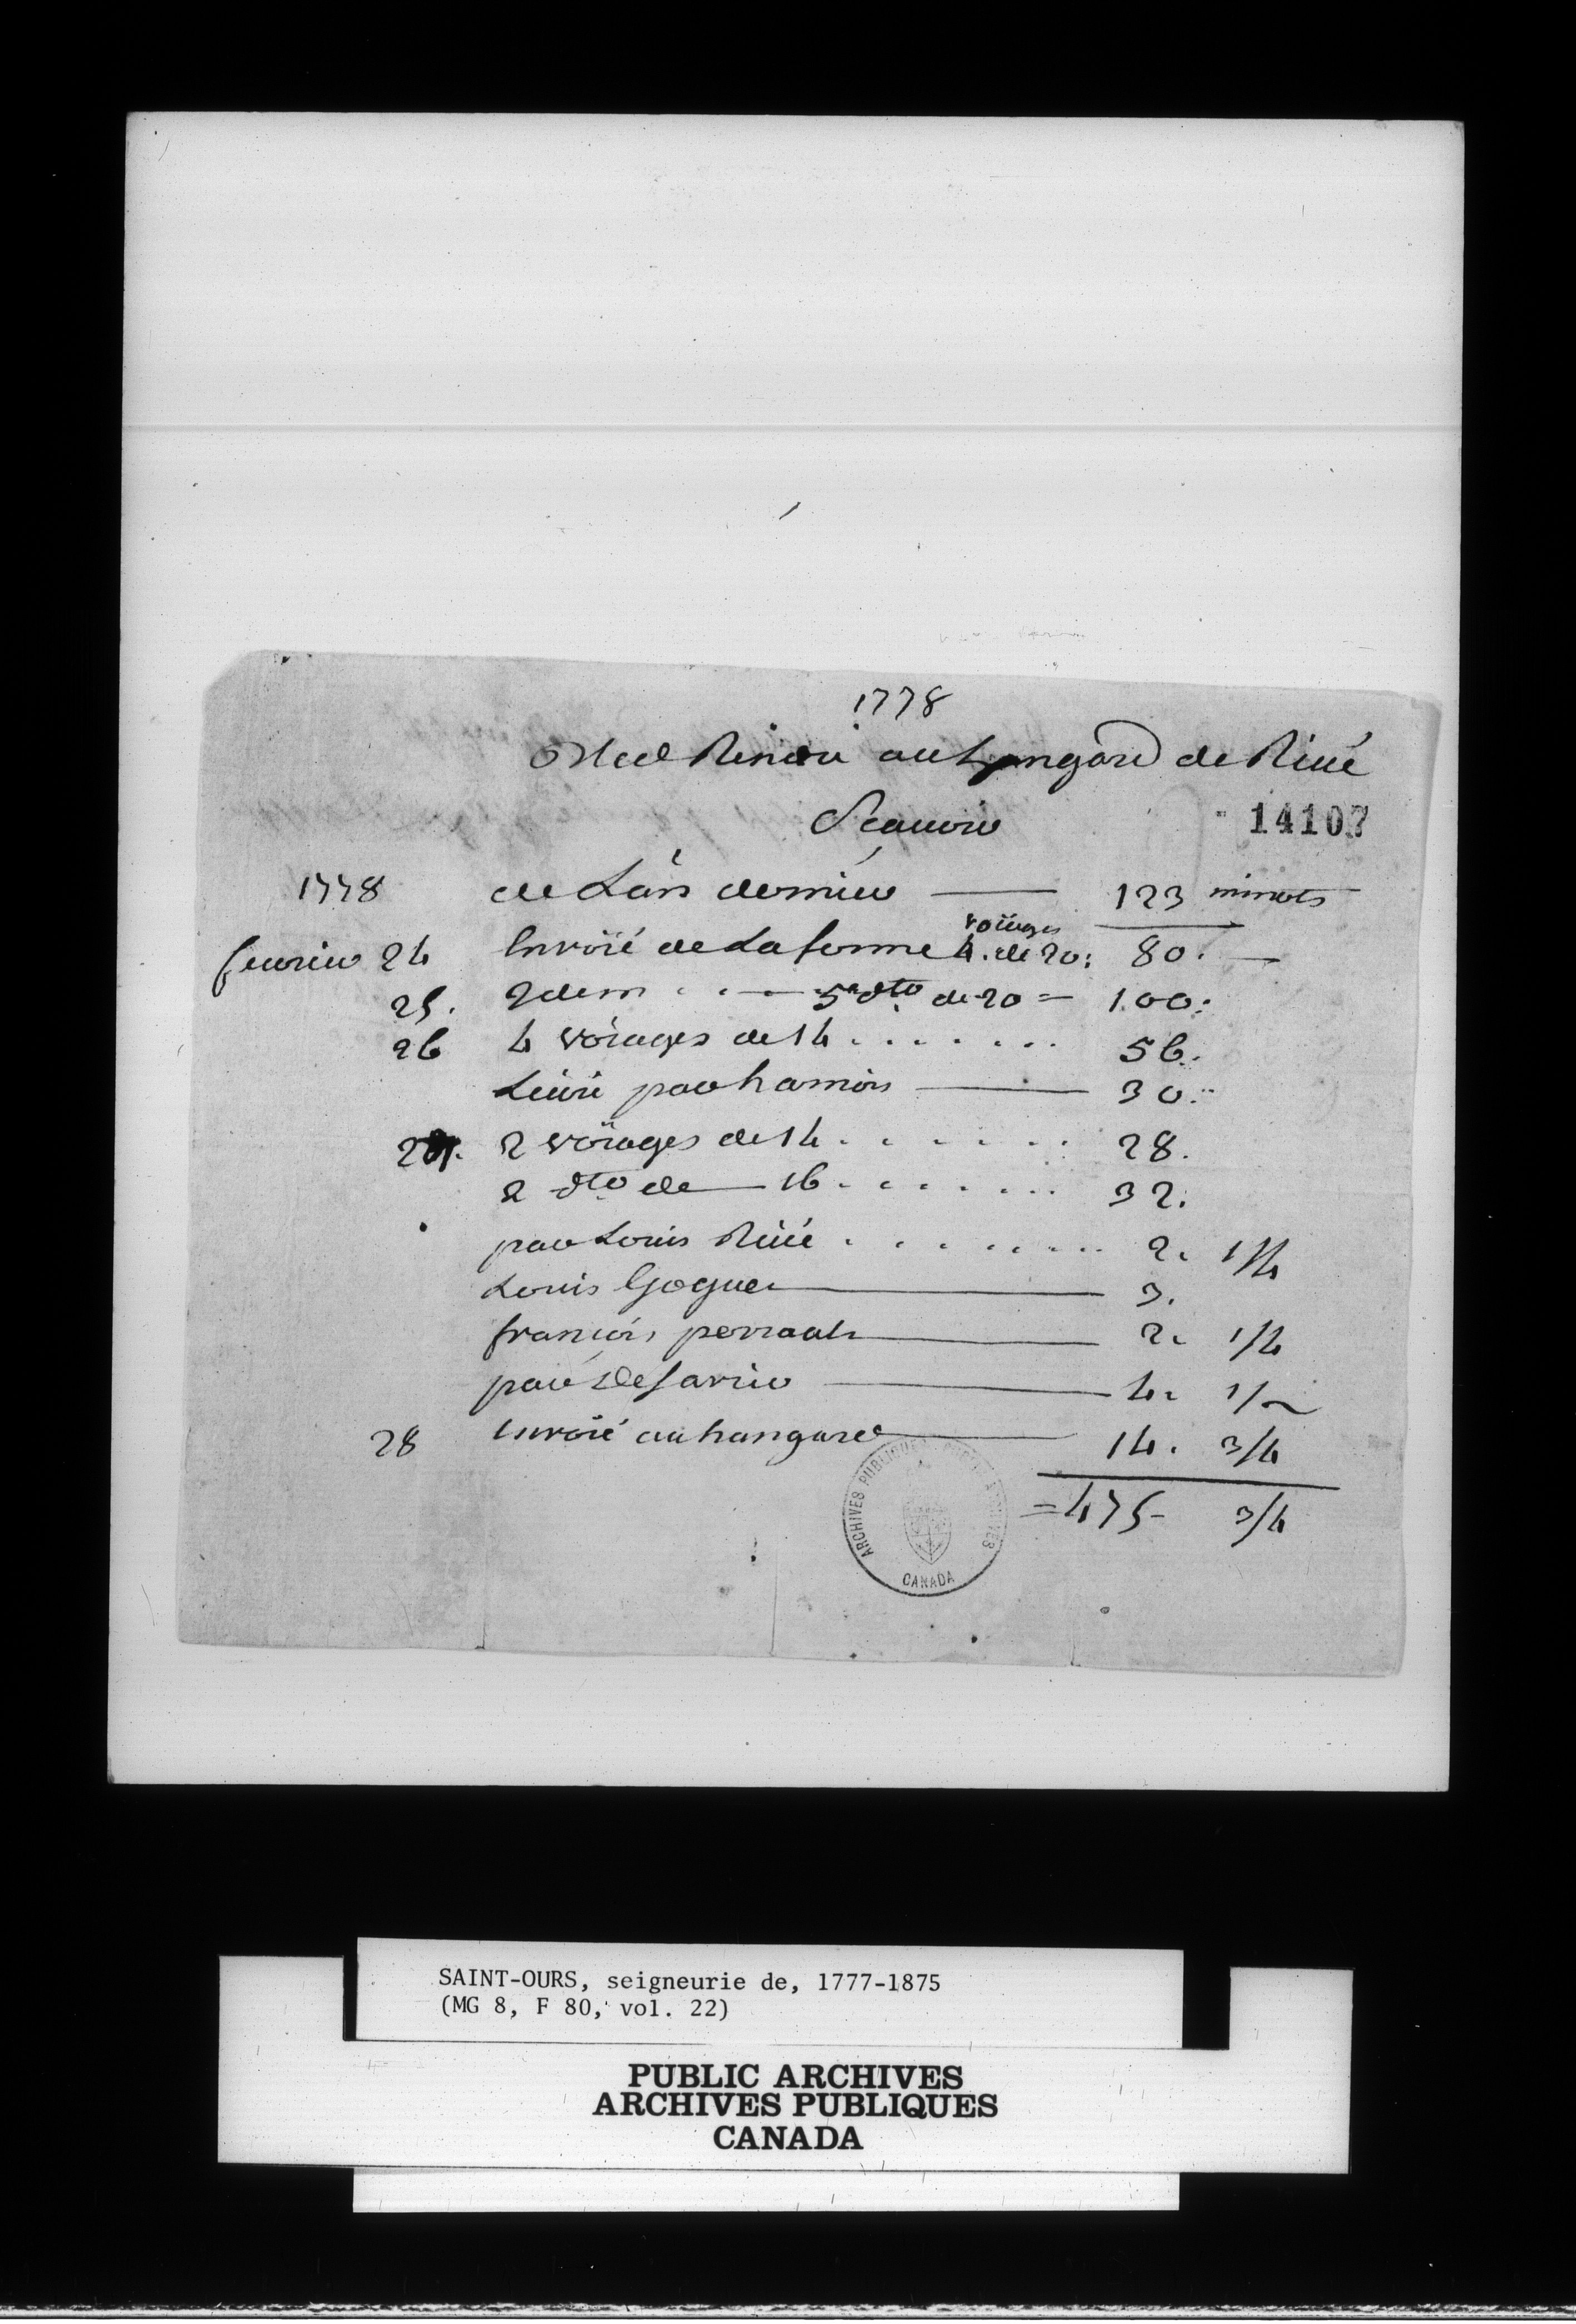 1778
Bled Rendu au hangard de Rivé
Scavoir
14107
1778 de Lan dernier — 123 minots
fevrier 24 Envoïé de La ferme 4. voïages de 20: 80. —
25. Idem . . — 5 dto de 20 = 100:
26 4 voïages de 14 . . . . . . . 56.
Livré par hamois — 30.
2 voïages de 14 . . . . . . 28.
2 dto de — 16 . . . . . . . 32.
par Louis Rivé . . . . . . . . 2. 1/4
Louis Goguet — 3.
françois perrault — 2. 1/4
par — 4. 1/2
28 Envoïé au hangard — 14. 3/4
= 475- 3/4
ARCHIVES PUBLIQUES PUBLIC ARCHIVES
CANADA
SAINT-OURS, seigneurie de, 1777-1875
(MG 8, F 80, vol. 22)
PUBLIC ARCHIVES
ARCHIVES PUBLIQUES
CANADA